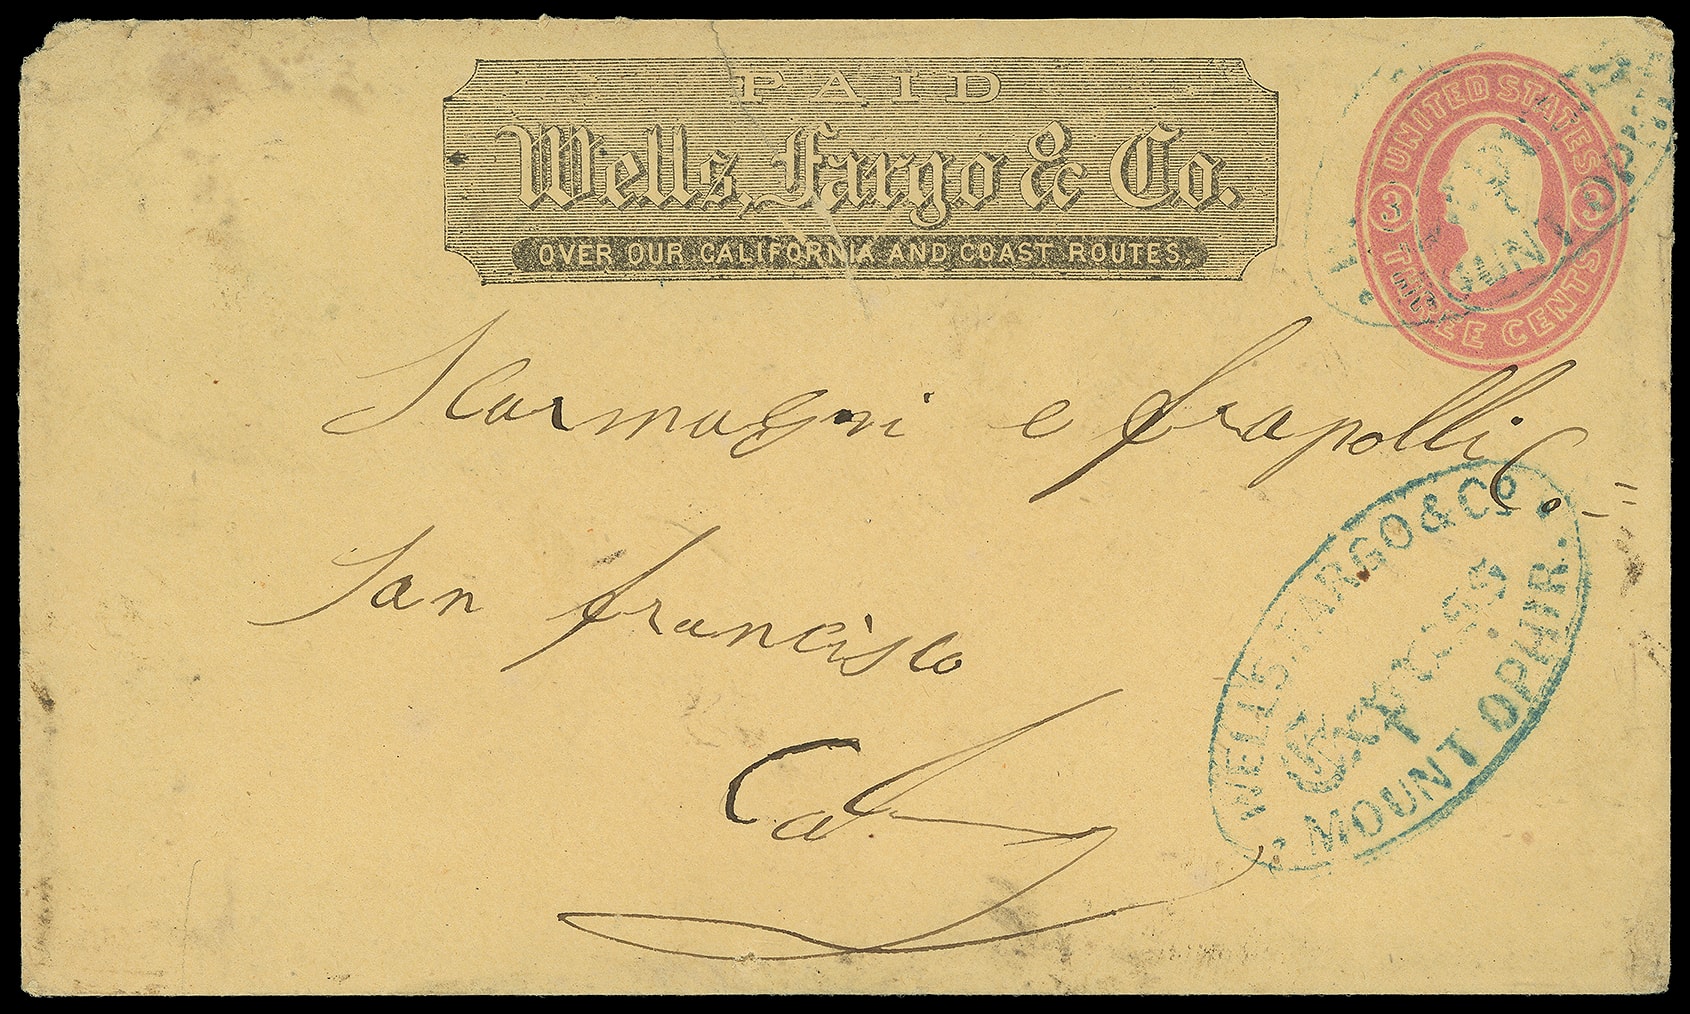 PAID
Wells, Fargo & Co.
OVER OUR CALIFORNIA AND COAST ROUTES.
UNITED STATES
3 3
THREE CENTS
Scarmagni e frapolli Co.
San francisco
Cal.
WELLS, FARGO & Co
Express
MOUNT OPHIR.